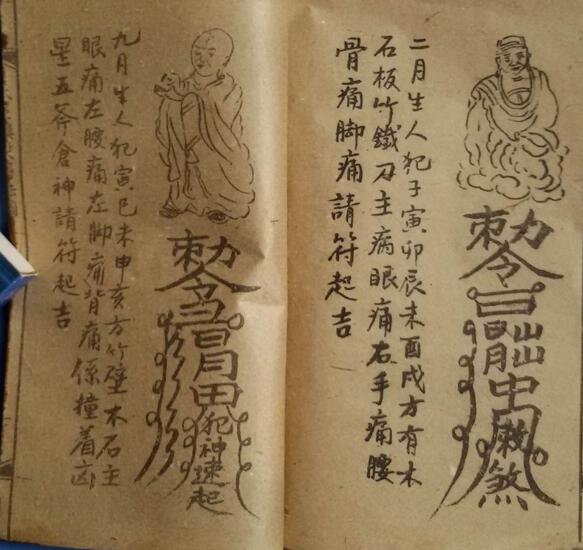 勅令
煞
二月生人犯子寅卯辰未酉戌方有木
石板竹鐵刀主病眼痛右手痛腰
骨痛脚痛請符起吉
勅令
犯神速起
九月生人犯寅巳未申亥方竹壁木石主
眼痛左腰痛左脚痛背痛係撞着凶
星五斧倉神請符起吉